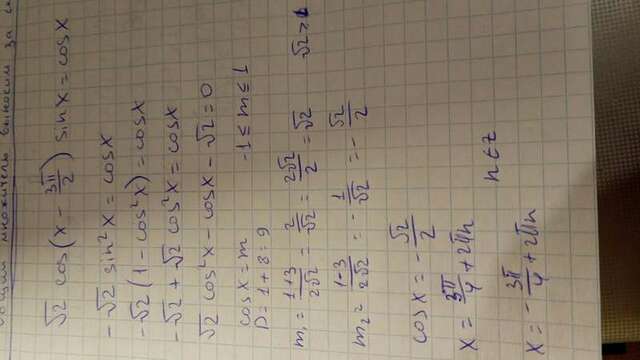 общий множитель выносим за ск
√2 cos(x - 3π/2) sin x = cos x
-√2 sin²x = cos x
-√2(1 - cos²x) = cos x
-√2 + √2 cos²x = cos x
√2 cos²x - cos x - √2 = 0
cos x = m    -1 ≤ m ≤ 1
D = 1 + 8 = 9
m₁ = (1+3)/(2√2) = 2/√2 = 2√2/2 = √2    √2 > 1
m₂ = (1-3)/(2√2) = -1/√2 = -√2/2
cos x = -√2/2
x = 3π/4 + 2πn
n ∈ z
x = -3π/4 + 2πn